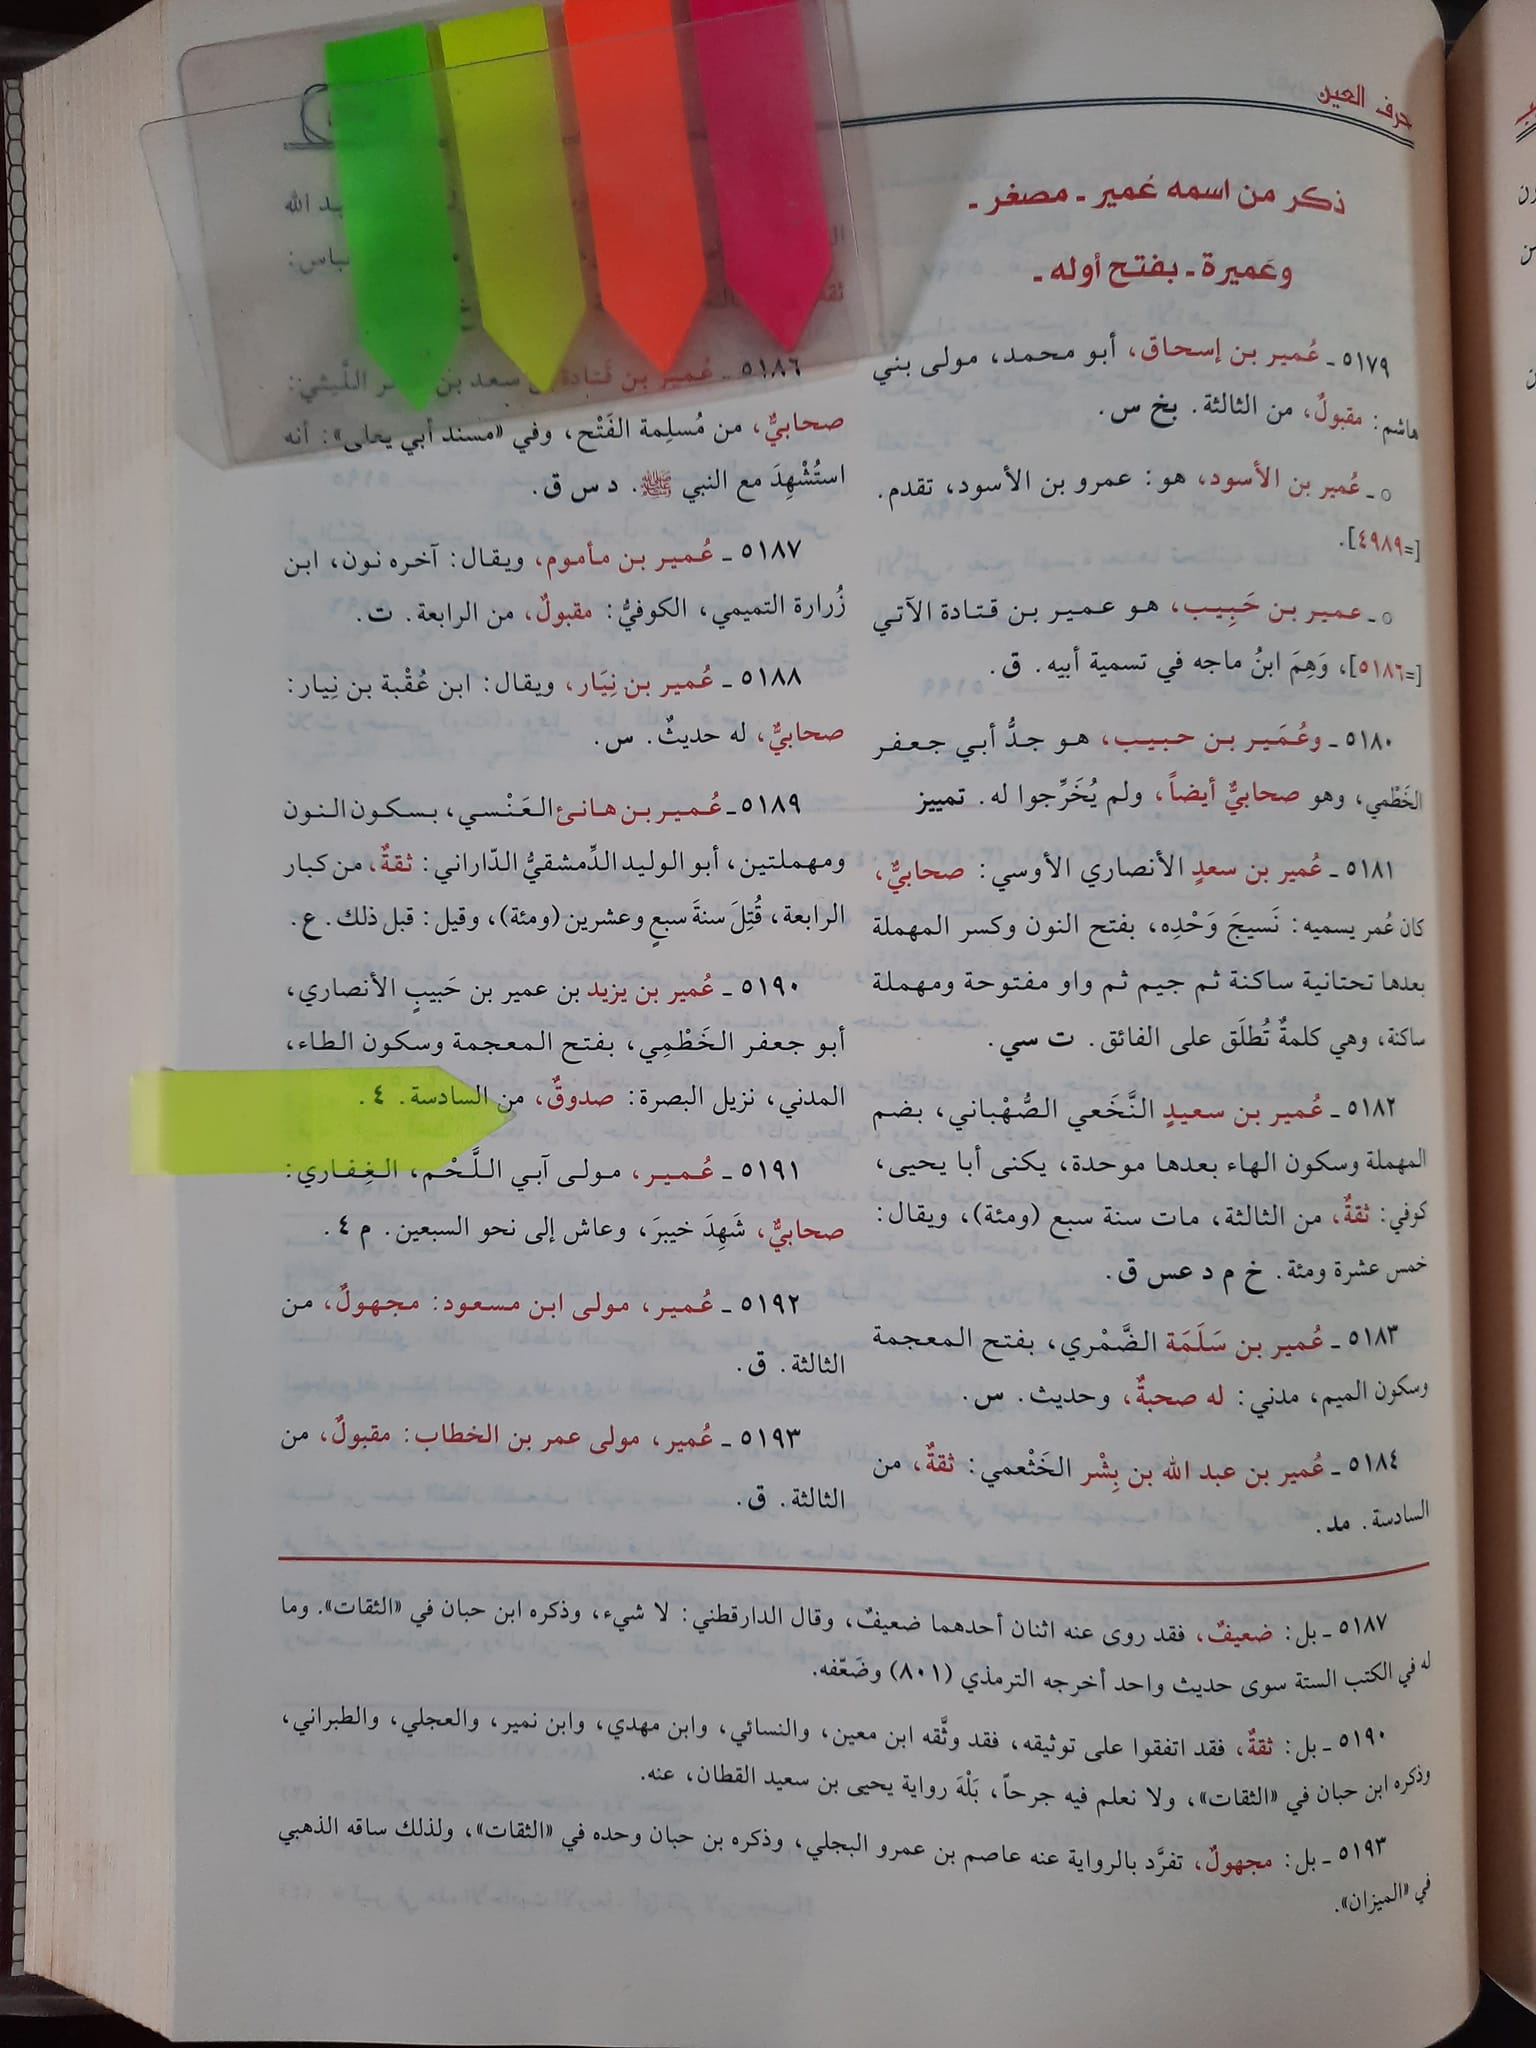 حرف العين
ذكر من اسمه عُمير ـ مصغر ـ
وعَميرة ـ بفتح أوله ـ
٥١٧٩ ـ عُمير بن إسحاق، أبو محمد، مولى بني
هاشم: مقبولٌ، من الثالثة. بخ س.
○ ـ عُمير بن الأسود، هو: عمرو بن الأسود، تقدم.
[=٤٩٨٩].
○ ـ عمير بن حَبِيب، هو عمير بن قتادة الآتي
[=٥١٨٦]، وَهِمَ ابنُ ماجه في تسمية أبيه. ق.
٥١٨٠ ـ وعُمَير بن حبيب، هو جدُّ أبي جعفر
الخَطْمي، وهو صحابيٌّ أيضاً، ولم يُخَرِّجوا له. تمييز
٥١٨١ ـ عُمير بن سعدٍ الأنصاري الأوسي: صحابيٌّ،
كان عُمر يسميه: نَسيجَ وَحْدِه، بفتح النون وكسر المهملة
بعدها تحتانية ساكنة ثم جيم ثم واو مفتوحة ومهملة
ساكنة، وهي كلمةٌ تُطلَق على الفائق. ت سي.
٥١٨٢ ـ عُمير بن سعيدٍ النَّخَعي الصُّهْباني، بضم
المهملة وسكون الهاء بعدها موحدة، يكنى أبا يحيى،
كوفي: ثقةٌ، من الثالثة، مات سنة سبع (ومئة)، ويقال:
خمس عشرة ومئة. خ م د عس ق.
٥١٨٣ ـ عُمير بن سَلَمَة الضَّمْري، بفتح المعجمة
وسكون الميم، مدني: له صحبةٌ، وحديث. س.
٥١٨٤ ـ عُمير بن عبد الله بن بِشْر الخَثْعمي: ثقةٌ، من
السادسة. مد.
بد الله
باس:
٥١٨٦ ـ عُمير بن قَتادة بن سعد بن اللَّيثي:
صحابيٌّ، من مُسلِمة الفَتْح، وفي «مسند أبي يعلى»: أنه
استُشْهِدَ مع النبي ﷺ. د س ق.
٥١٨٧ ـ عُمير بن مأموم، ويقال: آخره نون، ابن
زُرارة التميمي، الكوفيُّ: مقبولٌ، من الرابعة. ت.
٥١٨٨ ـ عُمير بن نِيَار، ويقال: ابن عُقْبة بن نِيار:
صحابيٌّ، له حديثٌ. س.
٥١٨٩ ـ عُمير بن هانئ العَنْسي، بسكون النون
ومهملتين، أبو الوليد الدِّمشقيُّ الدّاراني: ثقةٌ، من كبار
الرابعة، قُتِلَ سنةَ سبعٍ وعشرين (ومئة)، وقيل: قبل ذلك. ع.
٥١٩٠ ـ عُمير بن يزيد بن عمير بن حَبيبٍ الأنصاري،
أبو جعفر الخَطْمِي، بفتح المعجمة وسكون الطاء،
المدني، نزيل البصرة: صدوقٌ، من السادسة. ٤.
٥١٩١ ـ عُمير، مولى آبي اللَّحْم، الغِفاري:
صحابيٌّ، شَهِدَ خيبرَ، وعاش إلى نحو السبعين. م ٤.
٥١٩٢ ـ عُمير، مولى ابن مسعود: مجهولٌ، من
الثالثة. ق.
٥١٩٣ ـ عُمير، مولى عمر بن الخطاب: مقبولٌ، من
الثالثة. ق.
٥١٨٧ ـ بل: ضعيفٌ، فقد روى عنه اثنان أحدهما ضعيفٌ، وقال الدارقطني: لا شيء، وذكره ابن حبان في «الثقات». وما
له في الكتب الستة سوى حديث واحد أخرجه الترمذي (٨٠١) وضَعّفه.
٥١٩٠ ـ بل: ثقةٌ، فقد اتفقوا على توثيقه، فقد وثَّقه ابن معين، والنسائي، وابن مهدي، وابن نمير، والعجلي، والطبراني،
وذكره ابن حبان في «الثقات»، ولا نعلم فيه جرحاً، بَلْهَ رواية يحيى بن سعيد القطان، عنه.
٥١٩٣ ـ بل: مجهولٌ، تفرَّد بالرواية عنه عاصم بن عمرو البجلي، وذكره بن حبان وحده في «الثقات»، ولذلك ساقه الذهبي
في «الميزان».